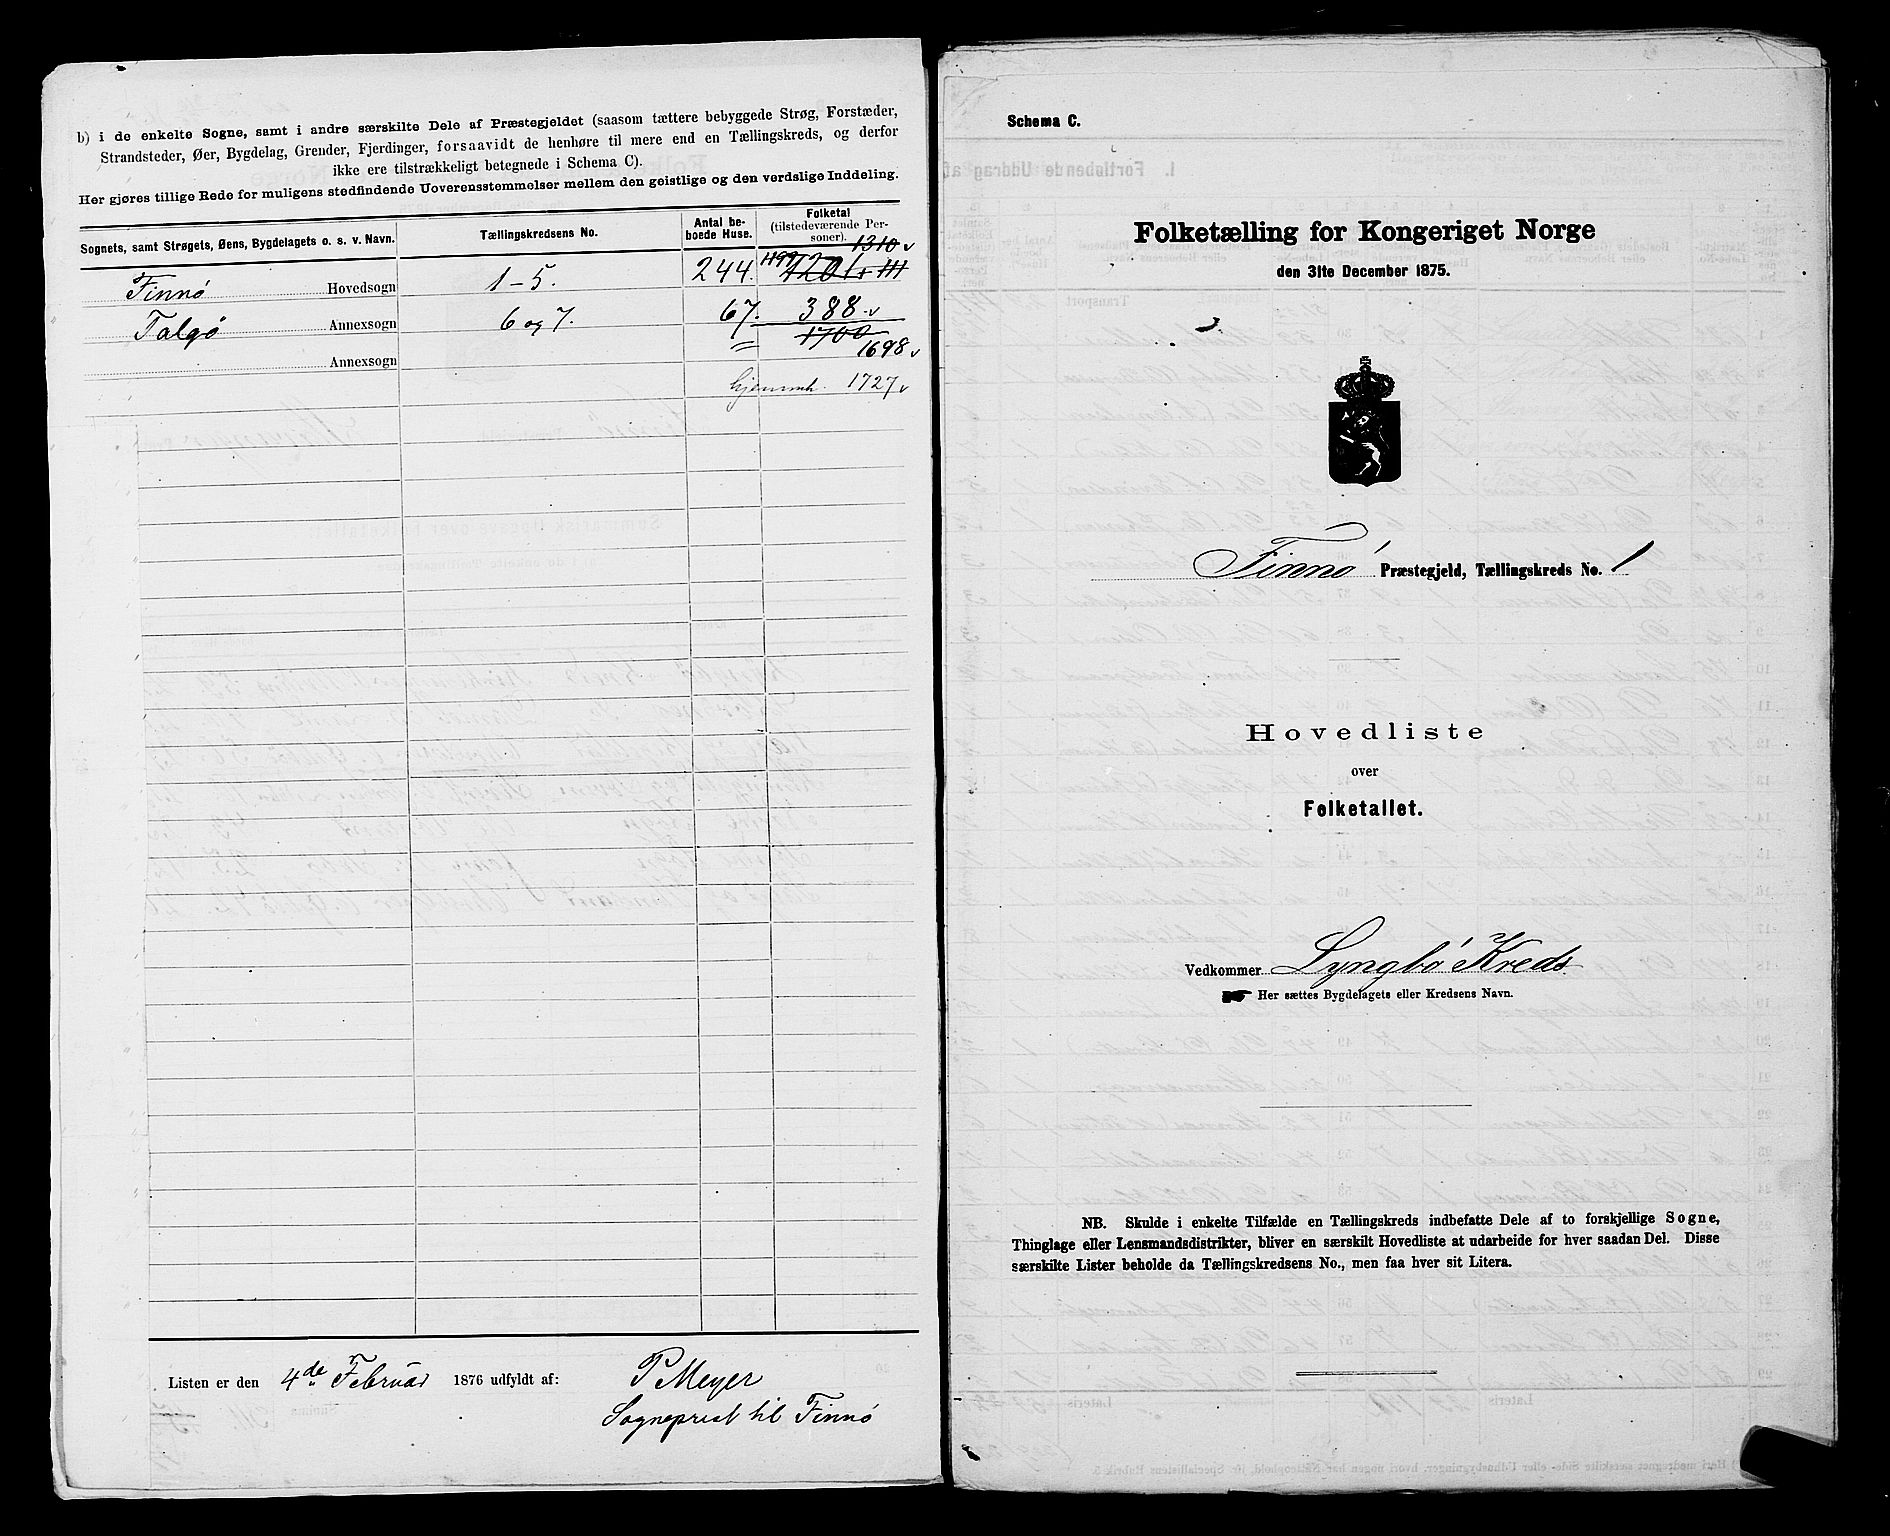 b) i de enkelte Sogne, samt i andre særskilte Dele af Præstegjeldet (saasom tættere bebyggede Strøg, Forstæder,
Strandsteder, Øer, Bygdelag, Grender, Fjerdinger, forsaavidt de henhøre til mere end en Tællingskreds, og derfor
ikke ere tilstrækkeligt betegnede i Schema C).
Her gjøres tillige Rede for muligens stedfindende Uoverensstemmelser mellem den geistlige og den verdslige Inddeling.
Sognets, samt Strøgets, Øens, Bygdelagets o. s. v. Navn. Tællingskredsens No. Antal beboede Huse. Folketal (tilstedeværende Personer).
1310 v
Finnö Hovedsogn 1-5. 244. 1199
Talgö Annexsogn 6 og 7. 67. 388 v
1700
Annexsogn 1698 v
hjemmh. 1727 v
Listen er den 4de Februar 1876 udfyldt af: P Meyer
Sogneprest til Finnö
Schema C.
Folketælling for Kongeriget Norge
den 31te December 1875.
Finnö Præstegjeld, Tællingskreds No. 1
Hovedliste
over
Folketallet.
Vedkommer Lyngbö Kreds
Her sættes Bygdelagets eller Kredsens Navn.
NB. Skulde i enkelte Tilfælde en Tællingskreds indbefatte Dele af to forskjellige Sogne,
Thinglage eller Lensmandsdistrikter, bliver en særskilt Hovedliste at udarbeide for hver saadan Del. Disse
særskilte Lister beholde da Tællingskredsens No., men faa hver sit Litera.